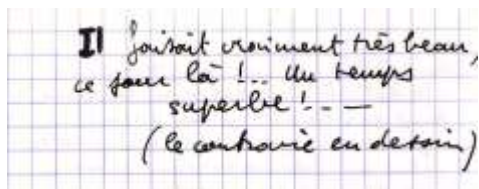 Il faisait vraiment très beau,
ce jour là !.. Un temps
superbe ! - - —
(le contraire en dessin)